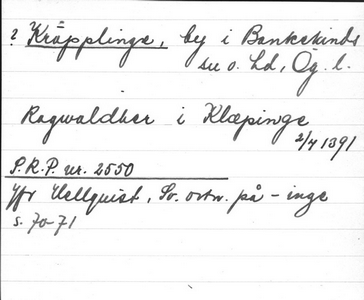 ? Kräpplinge, by i Bankekinds
su o. hd, Ög. l.
Ragwaldher i Klæpinge
2/4 1391
S.R.P. nr. 2550
Jfr Hellquist, Sv. ortn. på -inge
s. 70-71